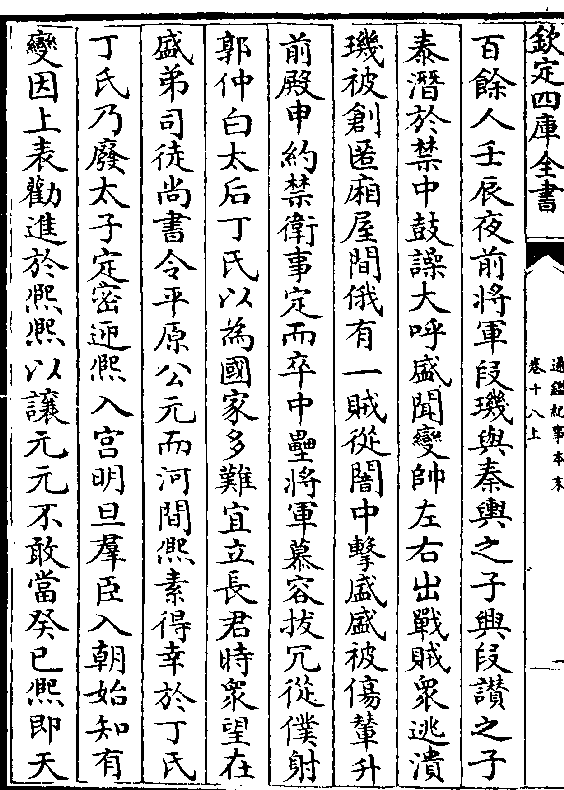 欽定四庫全書
通鑑紀事本末
卷十八上
一
百餘人壬辰夜前將軍段璣與秦輿之子興段讃之子
泰潛於禁中鼓譟大呼盛聞變帥左右出戰賊衆逃潰
璣被創匿廂屋間俄有一賊從闇中擊盛盛被傷輦升
前殿申約禁衛事定而卒中壘將軍慕容拔冗從僕射
郭仲白太后丁氏以為國家多難宜立長君時衆望在
盛弟司徒尚書令平原公元而河間熙素得幸於丁氏
丁氏乃廢太子定密迎熙入宮明旦羣臣入朝始知有
變因上表勸進於熙熙以讓元元不敢當癸巳熙即天